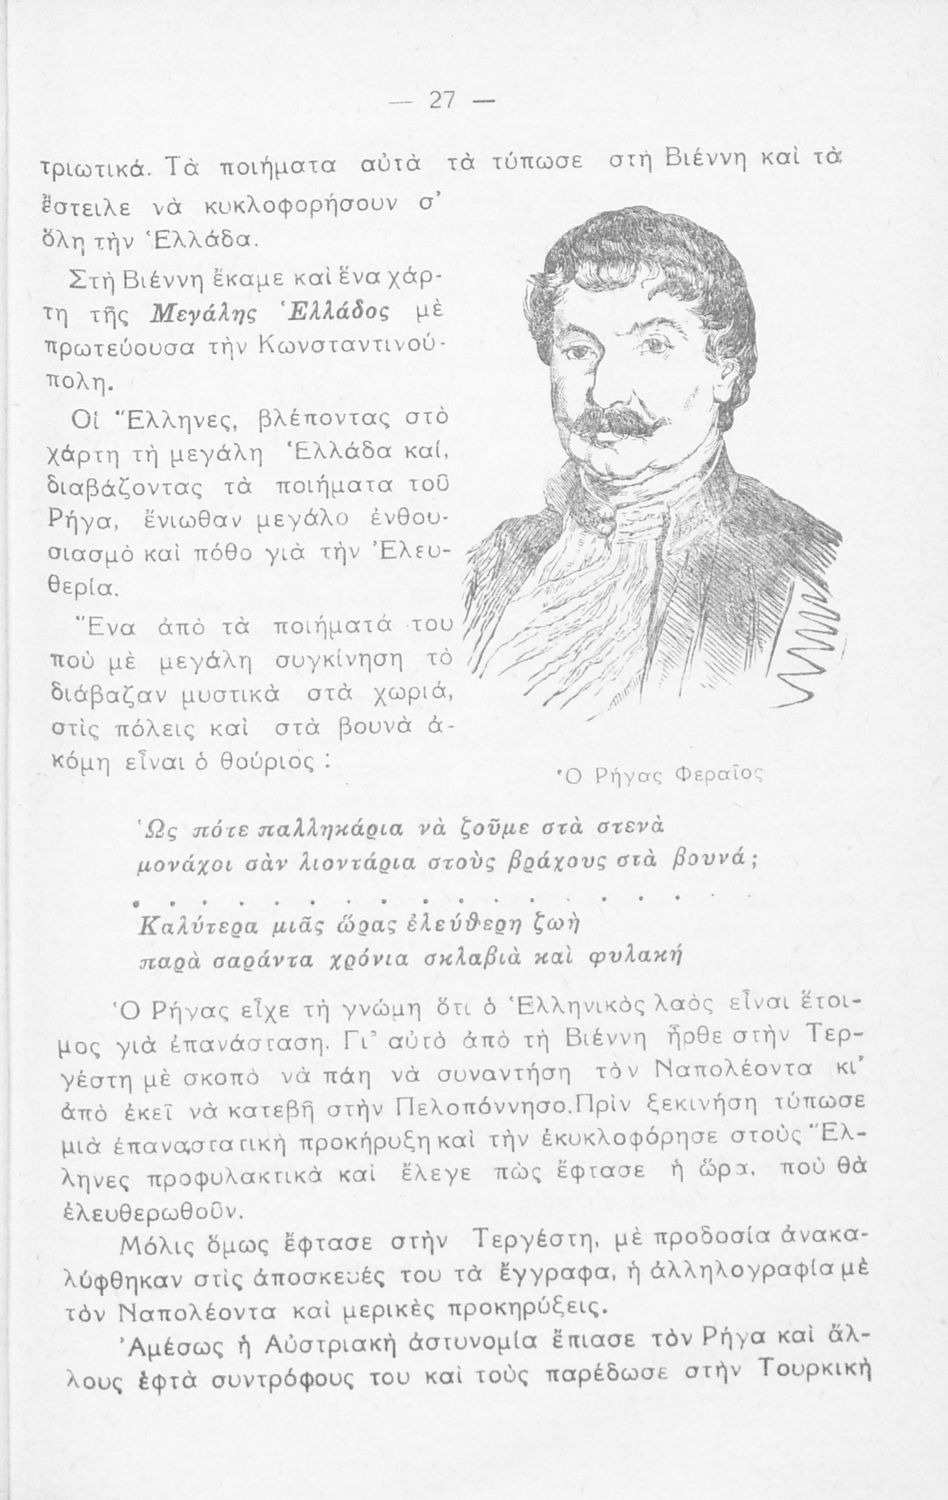 — 27 —
τριωτικά. Τὰ ποιήματα αὐτὰ τὰ τύπωσε στὴ Βιέννη καὶ τὰ
ἔστειλε νὰ κυκλοφορήσουν σ᾽
ὅλη τὴν Ἑλλάδα.
Στὴ Βιέννη ἔκαμε καὶ ἕνα χάρ-
τη τῆς Μεγάλης Ἑλλάδος μὲ
πρωτεύουσα τὴν Κωνσταντινού-
πολη.
Οἱ Ἕλληνες, βλέποντας στὸ
χάρτη τὴ μεγάλη Ἑλλάδα καί,
διαβάζοντας τὰ ποιήματα τοῦ
Ρήγα, ἔνιωθαν μεγάλο ἐνθου-
σιασμὸ καὶ πόθο γιὰ τὴν Ἐλευ-
θερία.
Ἕνα ἀπὸ τὰ ποιήματά του
ποὺ μὲ μεγάλη συγκίνηση τὸ
διάβαζαν μυστικὰ στὰ χωριά,
στὶς πόλεις καὶ στὰ βουνὰ ἀ-
κόμη εἶναι ὁ θούριος :
Ὁ Ρήγας Φεραῖος
Ὡς πότε παλληκάρια νὰ ζοῦμε στὰ στενὰ
μονάχοι σὰν λιοντάρια στοὺς βράχους στὰ βουνά;
. . . . . . . . . . . . . . . . . .
Καλύτερα μιᾶς ὥρας ἐλεύθερη ζωὴ
παρὰ σαράντα χρόνια σκλαβιὰ καὶ φυλακή
Ὁ Ρήγας εἶχε τὴ γνώμη ὅτι ὁ Ἑλληνικὸς λαὸς εἶναι ἕτοι-
μος γιὰ ἐπανάσταση. Γι᾽ αὐτὸ ἀπὸ τὴ Βιέννη ἦρθε στὴν Τερ-
γέστη μὲ σκοπὸ νὰ πάη νὰ συναντήση τὸν Ναπολέοντα κι᾽
ἀπὸ ἐκεῖ νὰ κατεβῆ στὴν Πελοπόννησο. Πρὶν ξεκινήση τύπωσε
μιὰ ἐπαναστατικὴ προκήρυξη καὶ τὴν ἐκυκλοφόρησε στοὺς Ἕλ-
ληνες προφυλακτικὰ καὶ ἔλεγε πὼς ἔφτασε ἡ ὥρα, ποὺ θὰ
ἐλευθερωθοῦν.
Μόλις ὅμως ἔφτασε στὴν Τεργέστη, μὲ προδοσία ἀνακα-
λύφθηκαν στὶς ἀποσκευές του τὰ ἔγγραφα, ἡ ἀλληλογραφία μὲ
τὸν Ναπολέοντα καὶ μερικὲς προκηρύξεις.
Ἀμέσως ἡ Αὐστριακὴ ἀστυνομία ἔπιασε τὸν Ρήγα καὶ ἄλ-
λους ἑφτὰ συντρόφους του καὶ τοὺς παρέδωσε στὴν Τουρκικὴ